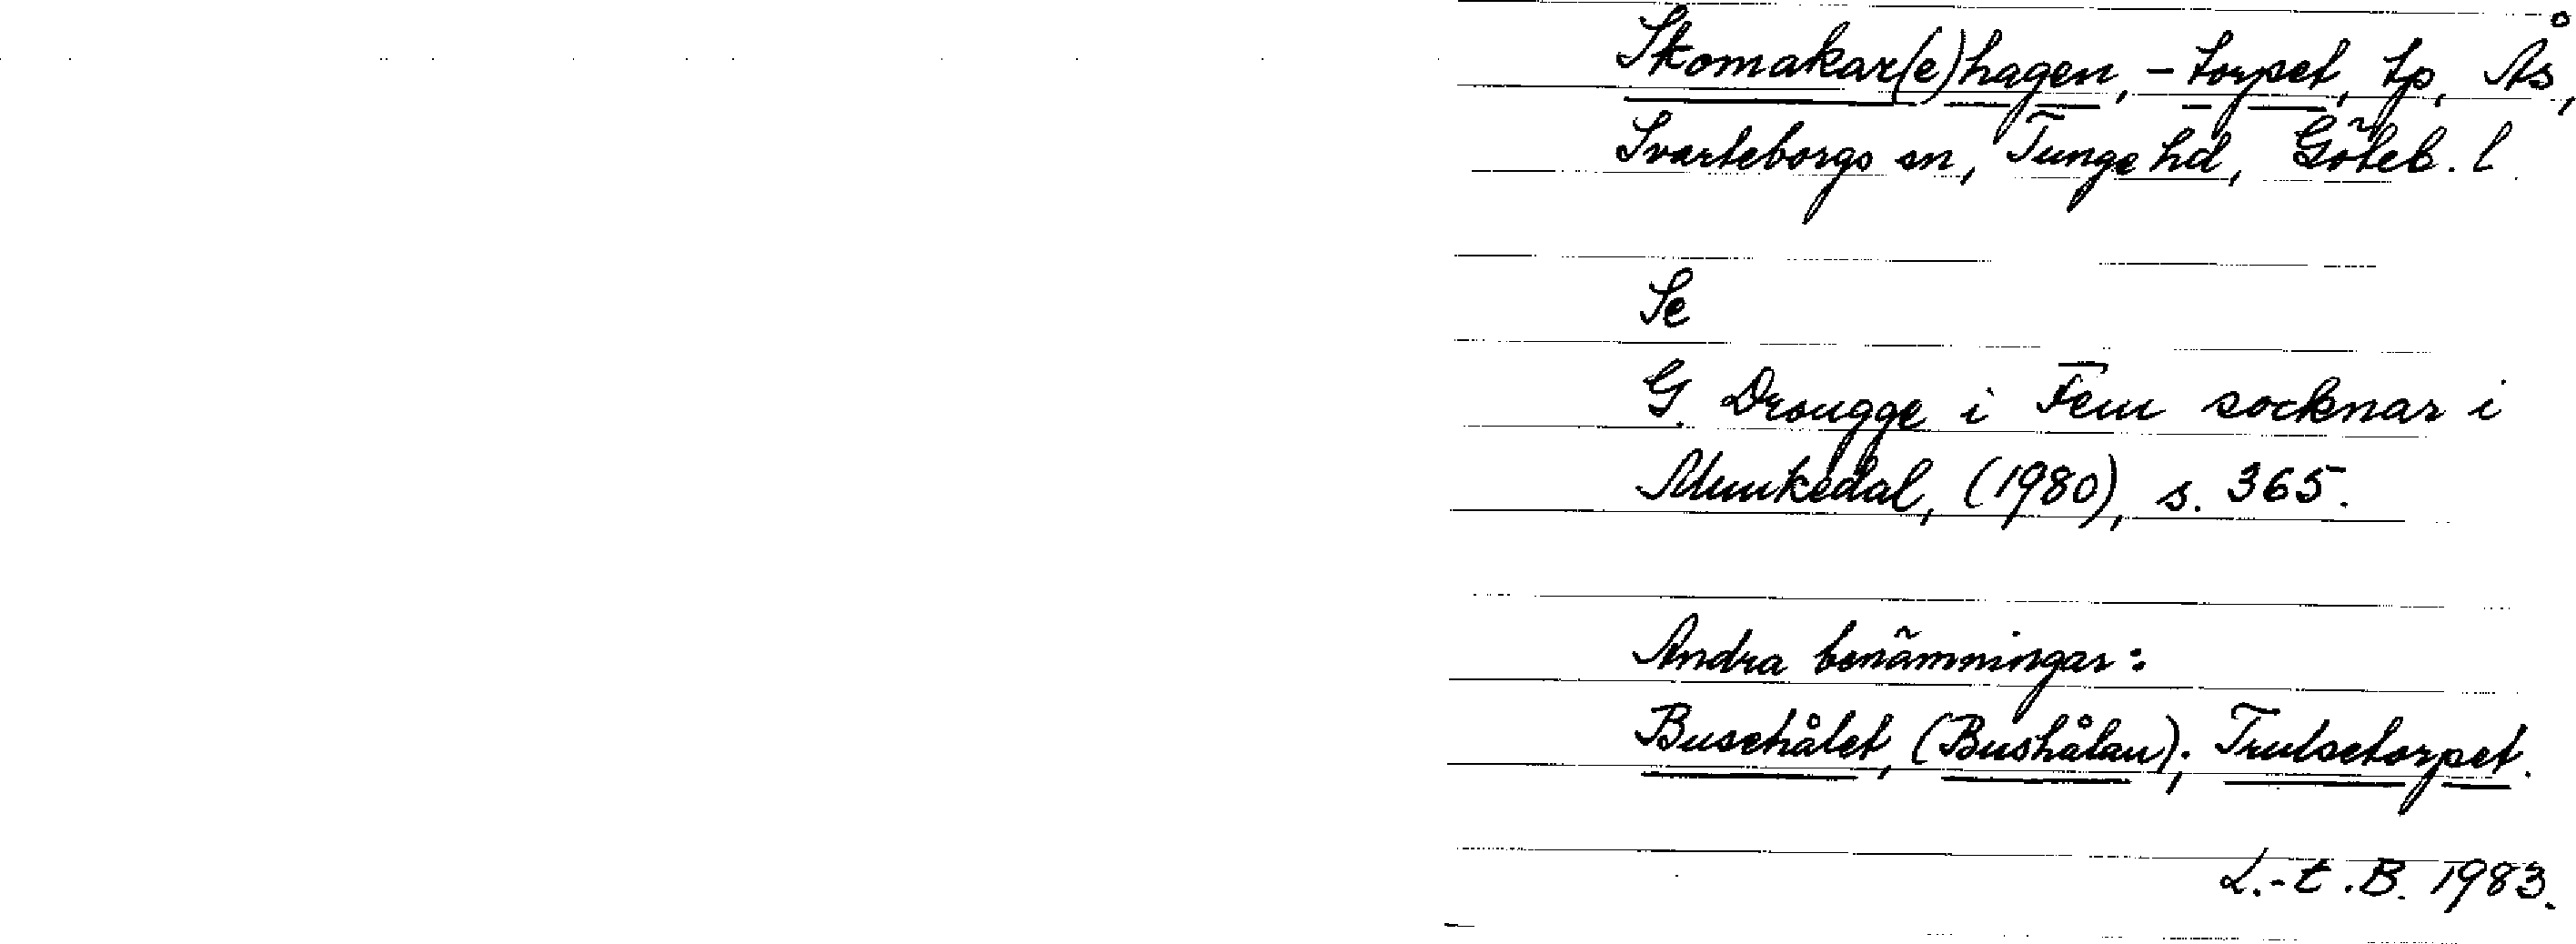 Skomakar(e)hagen, -torpet, tp, Ås,
Svarteborgs sn, Tunge hd, Göteb. l.
Se
G. Drougge i Fem socknar i
Munkedal, (1980), s. 365.
Andra benämningar:
Busehålet, (Bushålan); Trutsetorpet.
L.-E. B. 1983.